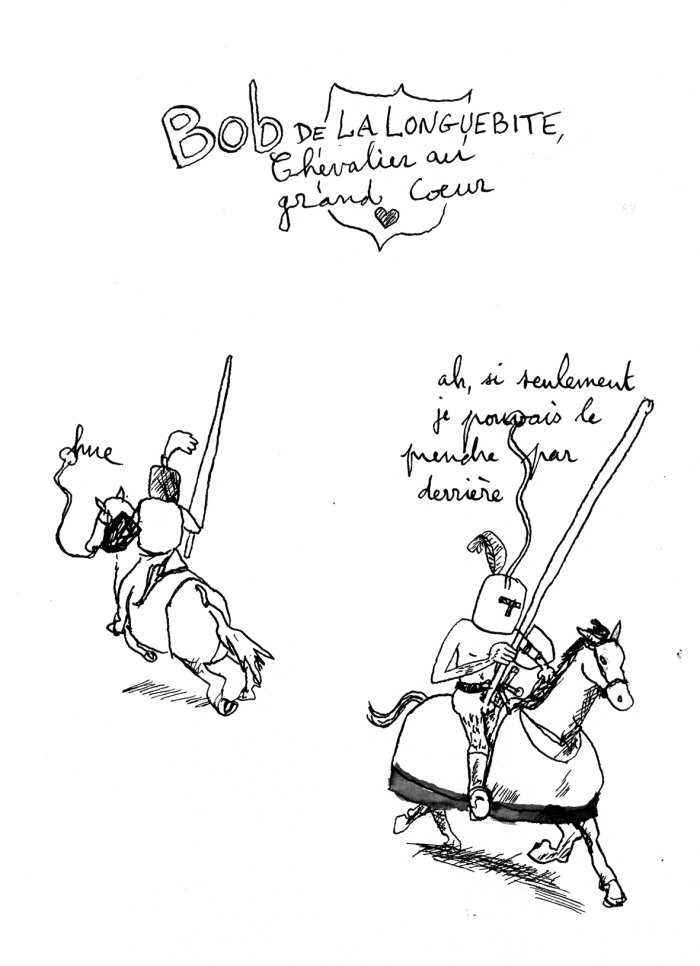 Bob DE LA LONGUEBITE,
Chevalier au
grand Coeur
hue
ah, si seulement
je pouvais le
prendre par
derrière